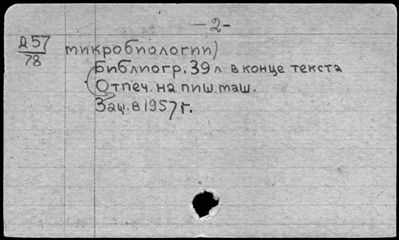 — 2 —
Д57
78
микробиологии)
Библиогр. 39 л. в конце текста
Отпеч. на пиш. маш.
Защ. в 1957 г.